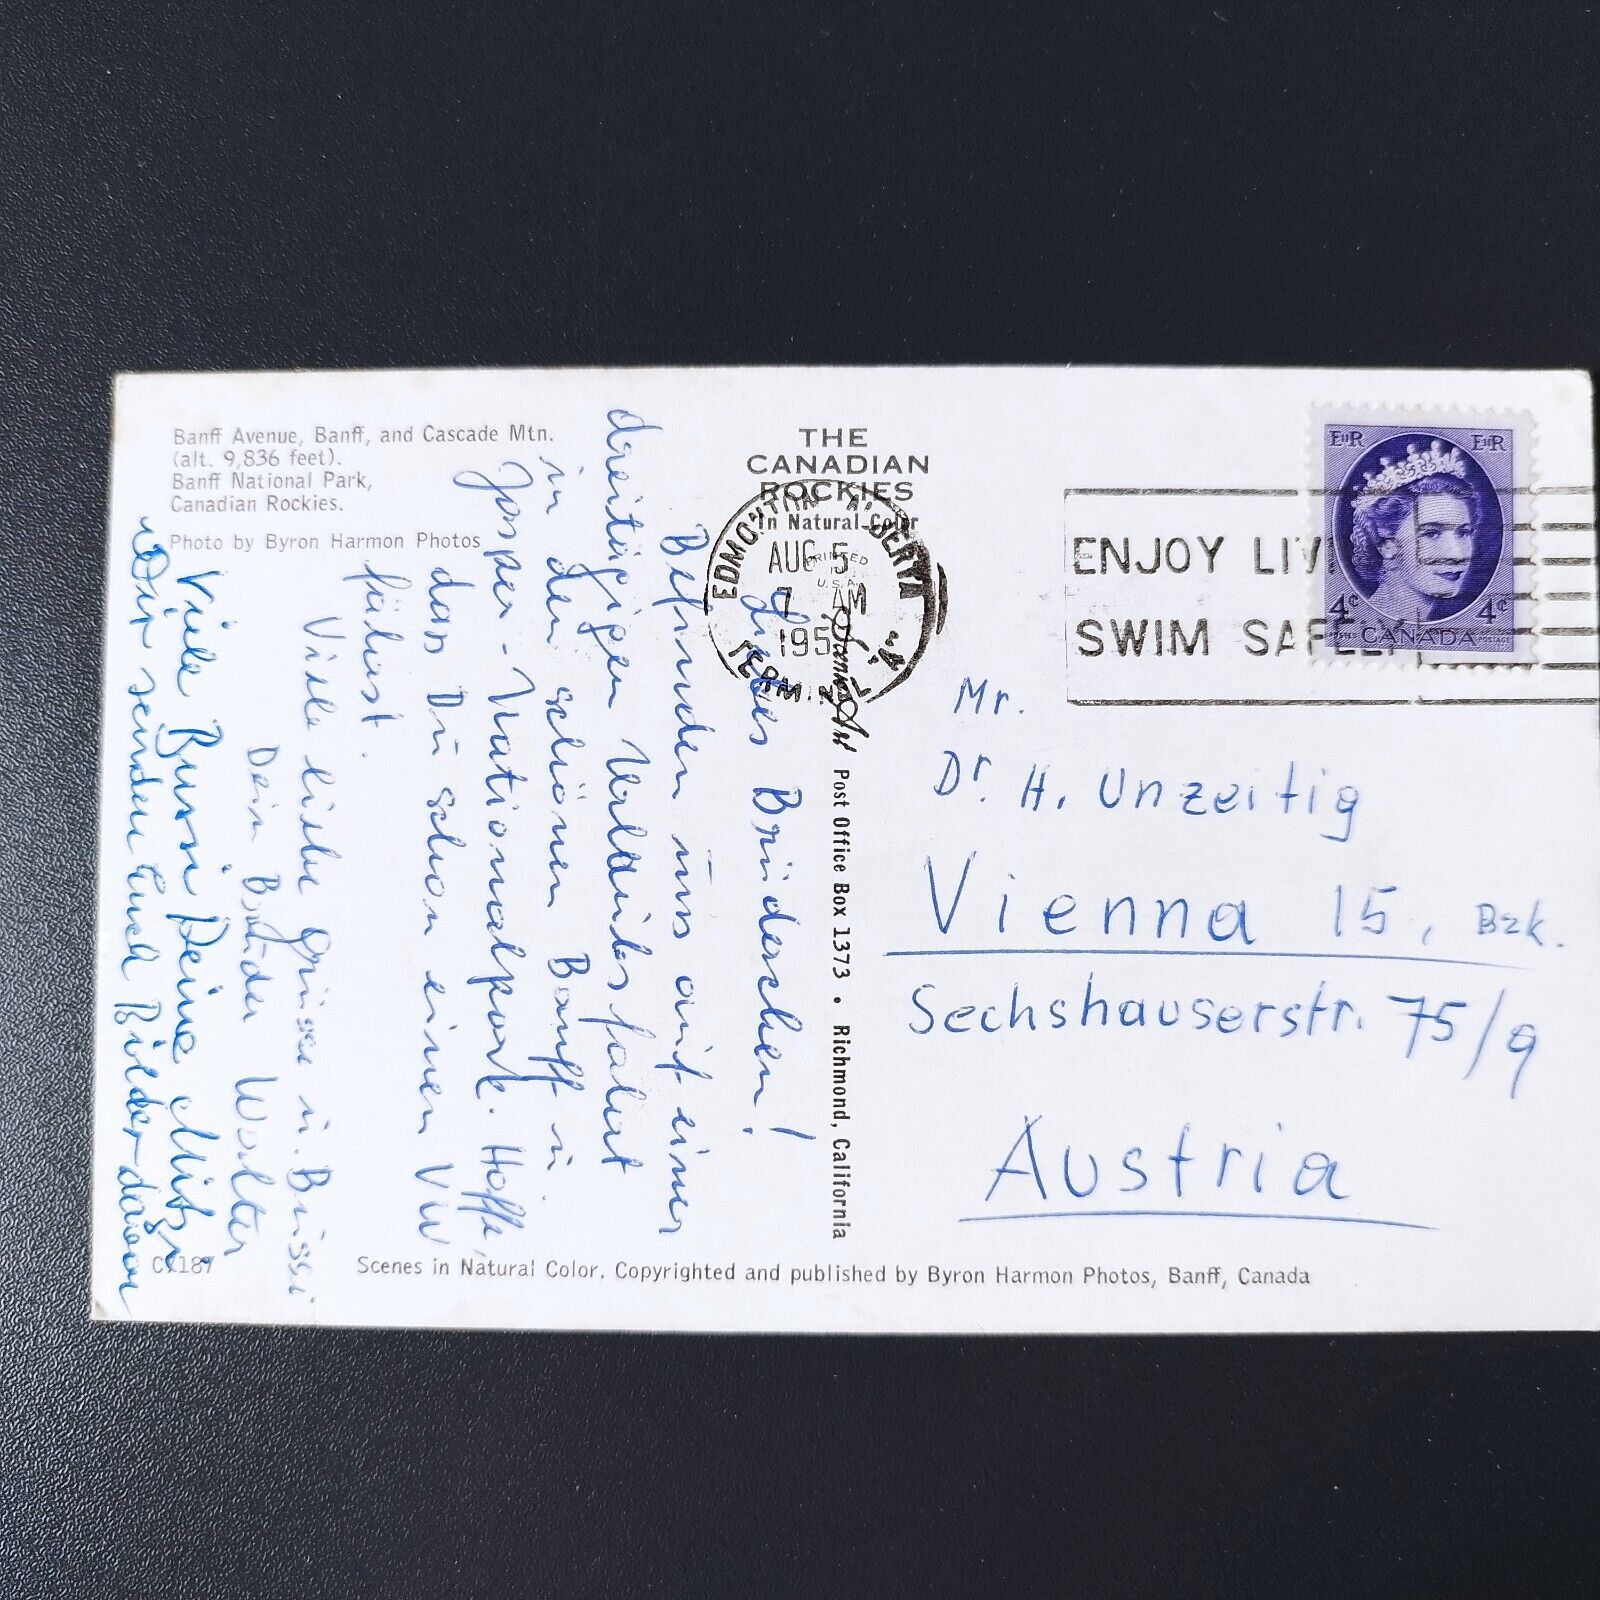 Banff Avenue, Banff, and Cascade Mtn.
(alt. 9,836 feet).
Banff National Park,
Canadian Rockies.
Photo by Byron Harmon Photos
THE
CANADIAN
ROCKIES
In Natural Color
PRINTED
U.S.A.
EDMONTON ALBERTA
AUG 5
7 AM
195
TERMINAL "A"
ENJOY LIV
SWIM SAFELY
EIIR EIIR
4¢ 4¢
POSTES CANADA POSTAGE
Liebes Brüderchen!
Befinden uns auf einer
dreitägigen Urlaubsfahrt
in den schönen Banff u.
Jasper-Nationalpark. Hoffe,
dass Du schon einen VW
fährst.
Viele liebe Grüsse u. Bussi
Dein Bruder Walter
Viele Bussi Deine Mitzi
Wir senden Euch Bilder davon
Post Office Box 1373 • Richmond, California
Mr.
Dr. H. Unzeitig
Vienna 15, Bzk.
Sechshauserstr. 75/9
Austria
C-187
Scenes in Natural Color. Copyrighted and published by Byron Harmon Photos, Banff, Canada